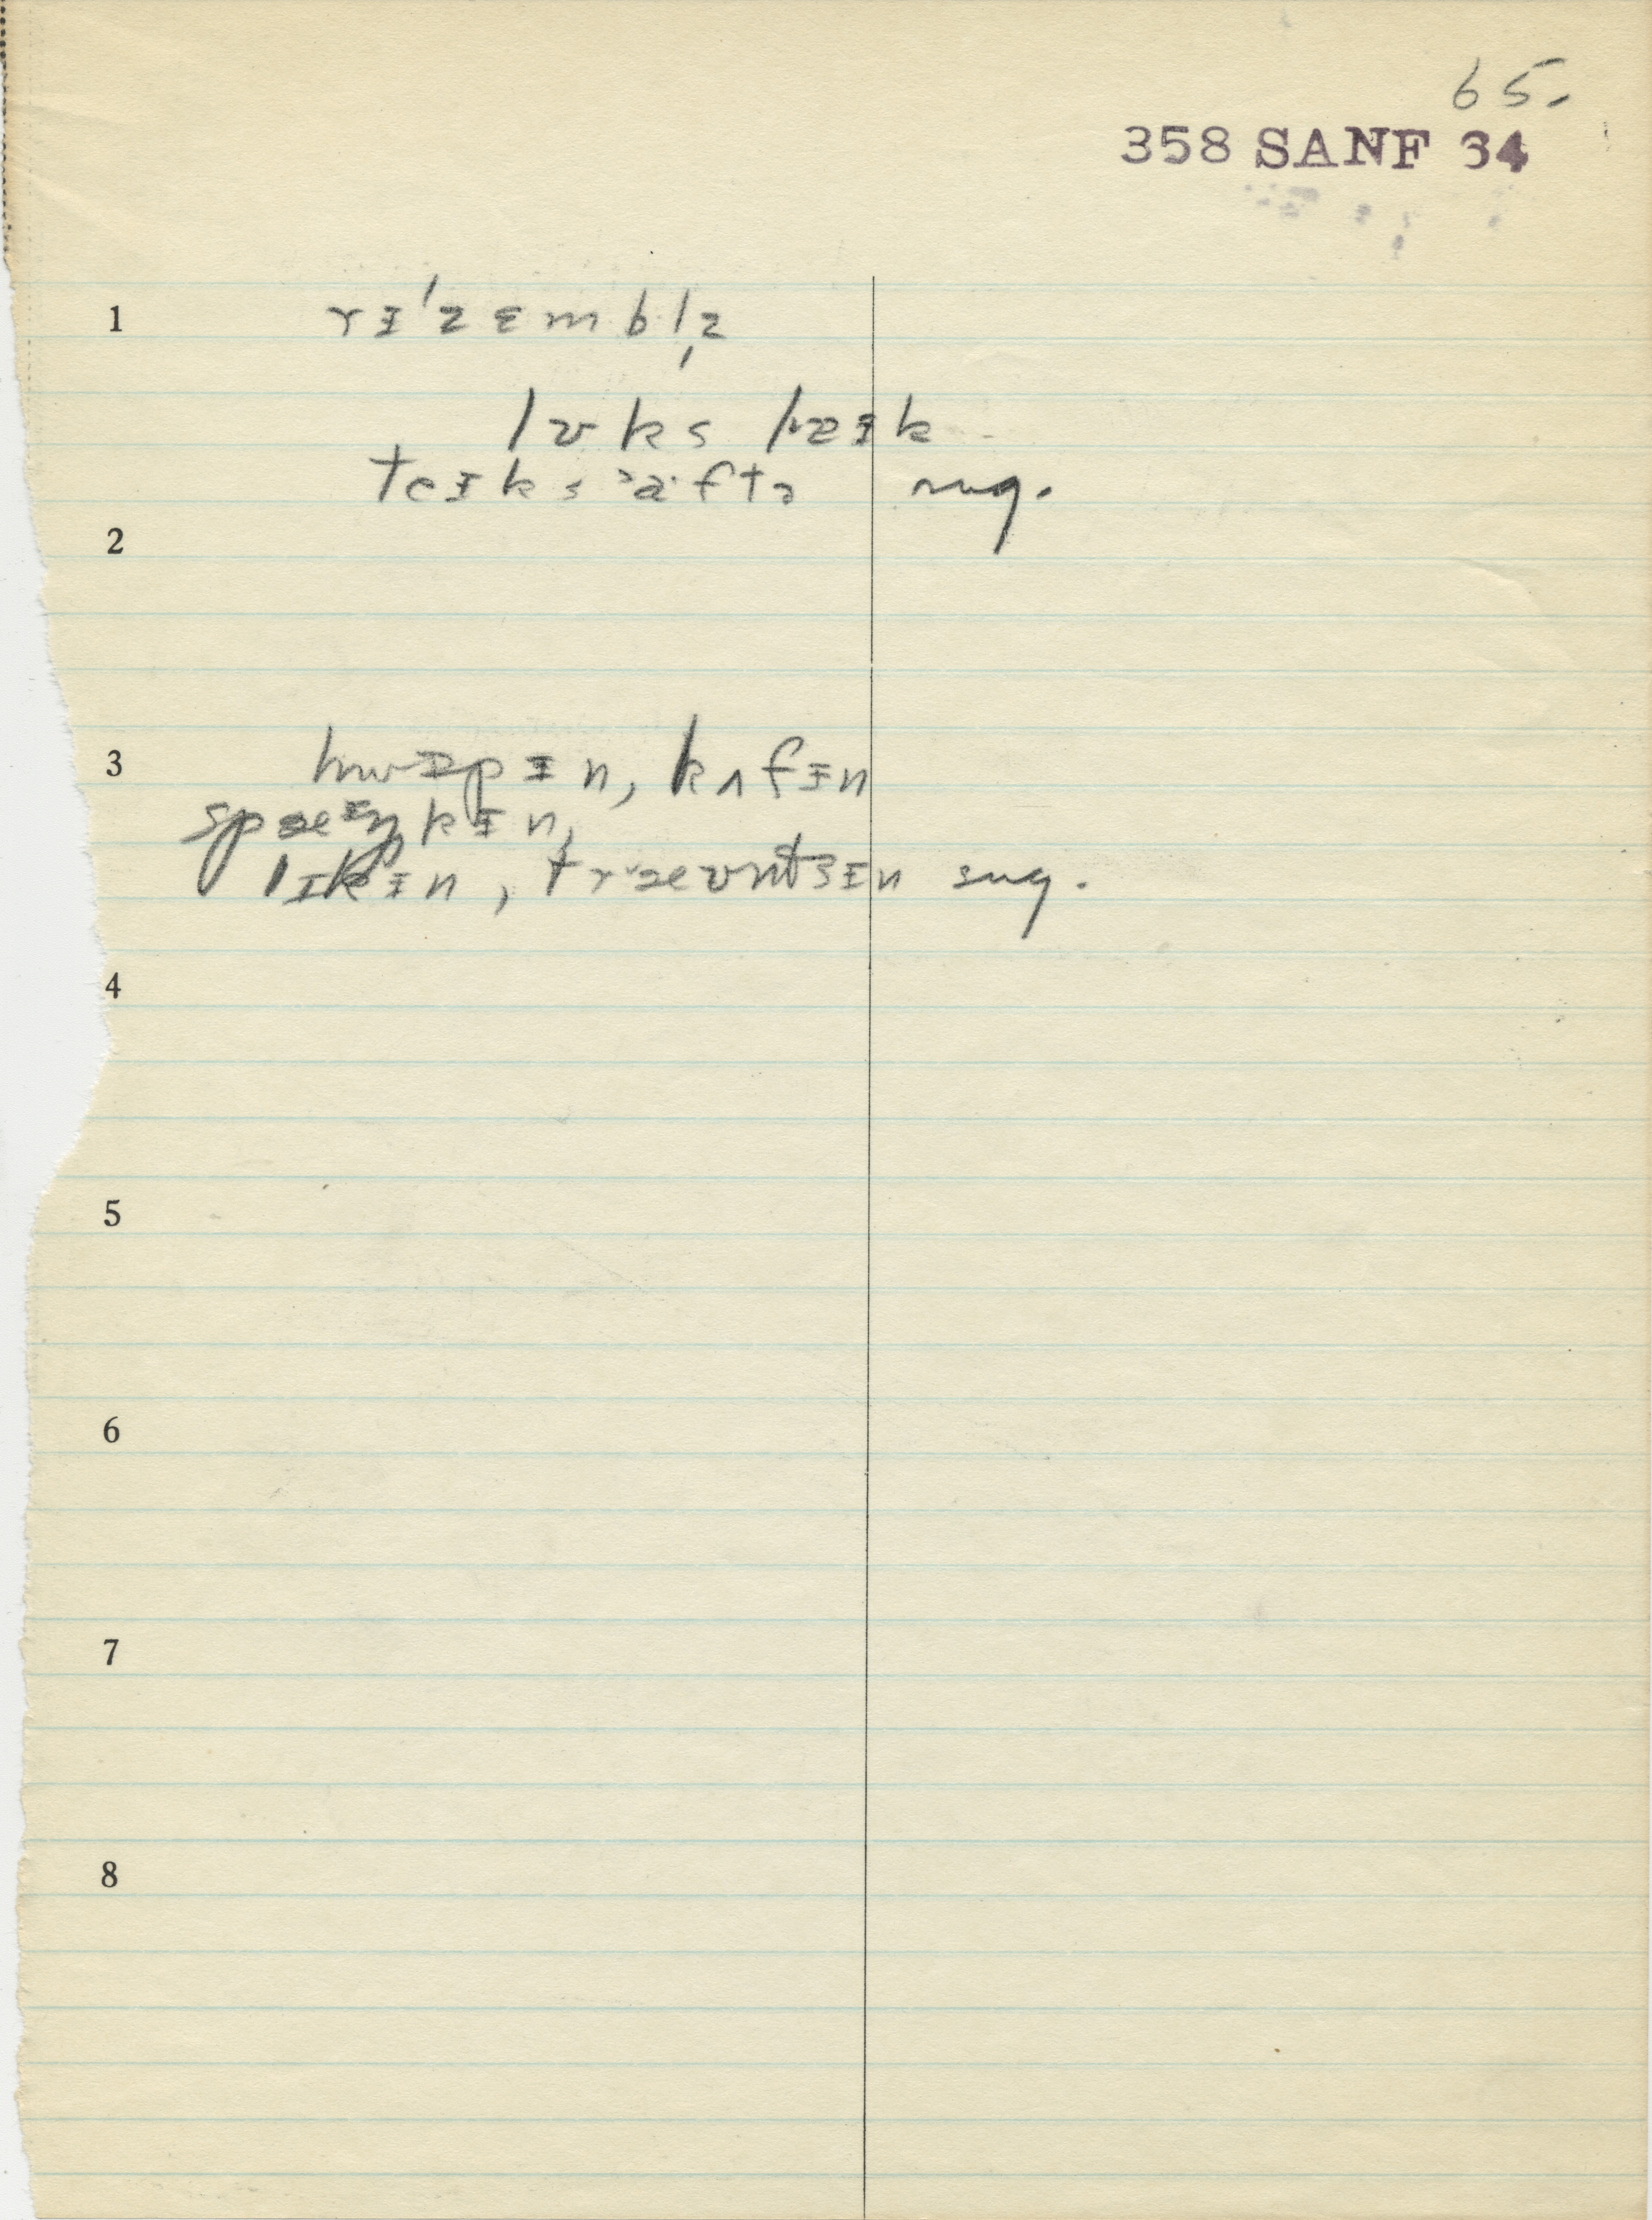 65.
358 SANF 34
1 rɪ'zɛmbl̩z
lʊks laɪk
teɪks æftə sug.
2
3 hwɪpɪn, kʌfɪn
spæɪŋkɪn,
lɪkɪn, træʊntsɪn sug.
4
5
6
7
8